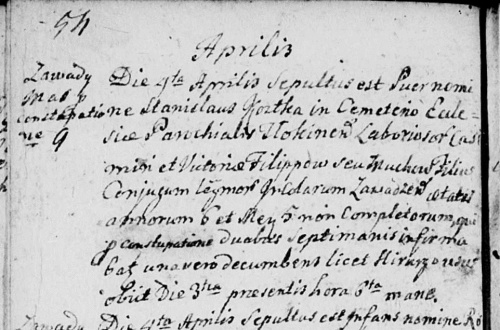 54
Aprilis
Zawady
Mas
constupatio
ne 9
Die 4ta Aprilis Sepultus est Puer nomi
ne Stanislaus in Cemeterio Eccle-
siæ Parochialis Laboriosor Casi
miri et Victoriæ Filippow seu Muchow Filius
Conjugum legmor Incolarum Zawadzen ætatis
annorum 6 et non Completorum, qui
p constupatione duabus Septimanis infirma
bat una vero decumbens licet usus
obiit Die 3tia præsentis hora 6ta mane.
Zawady Die 4ta Aprilis Sepultus est Infans nomine